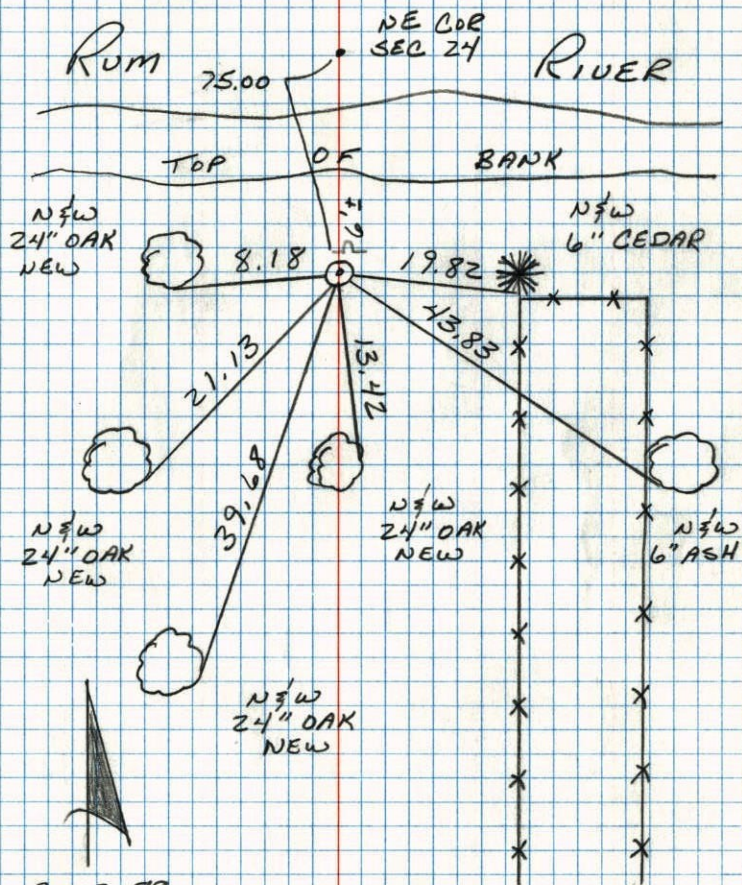 NE COR
SEC 24
RUM
RIVER
75.00
TOP OF BANK
N&W
24" OAK
NEW
8.18
19.82
N&W
6" CEDAR
43.83
21.13
13.42
39.68
N&W
24" OAK
NEW
N&W
24" OAK
NEW
N&W
6" ASH
N&W
24" OAK
NEW